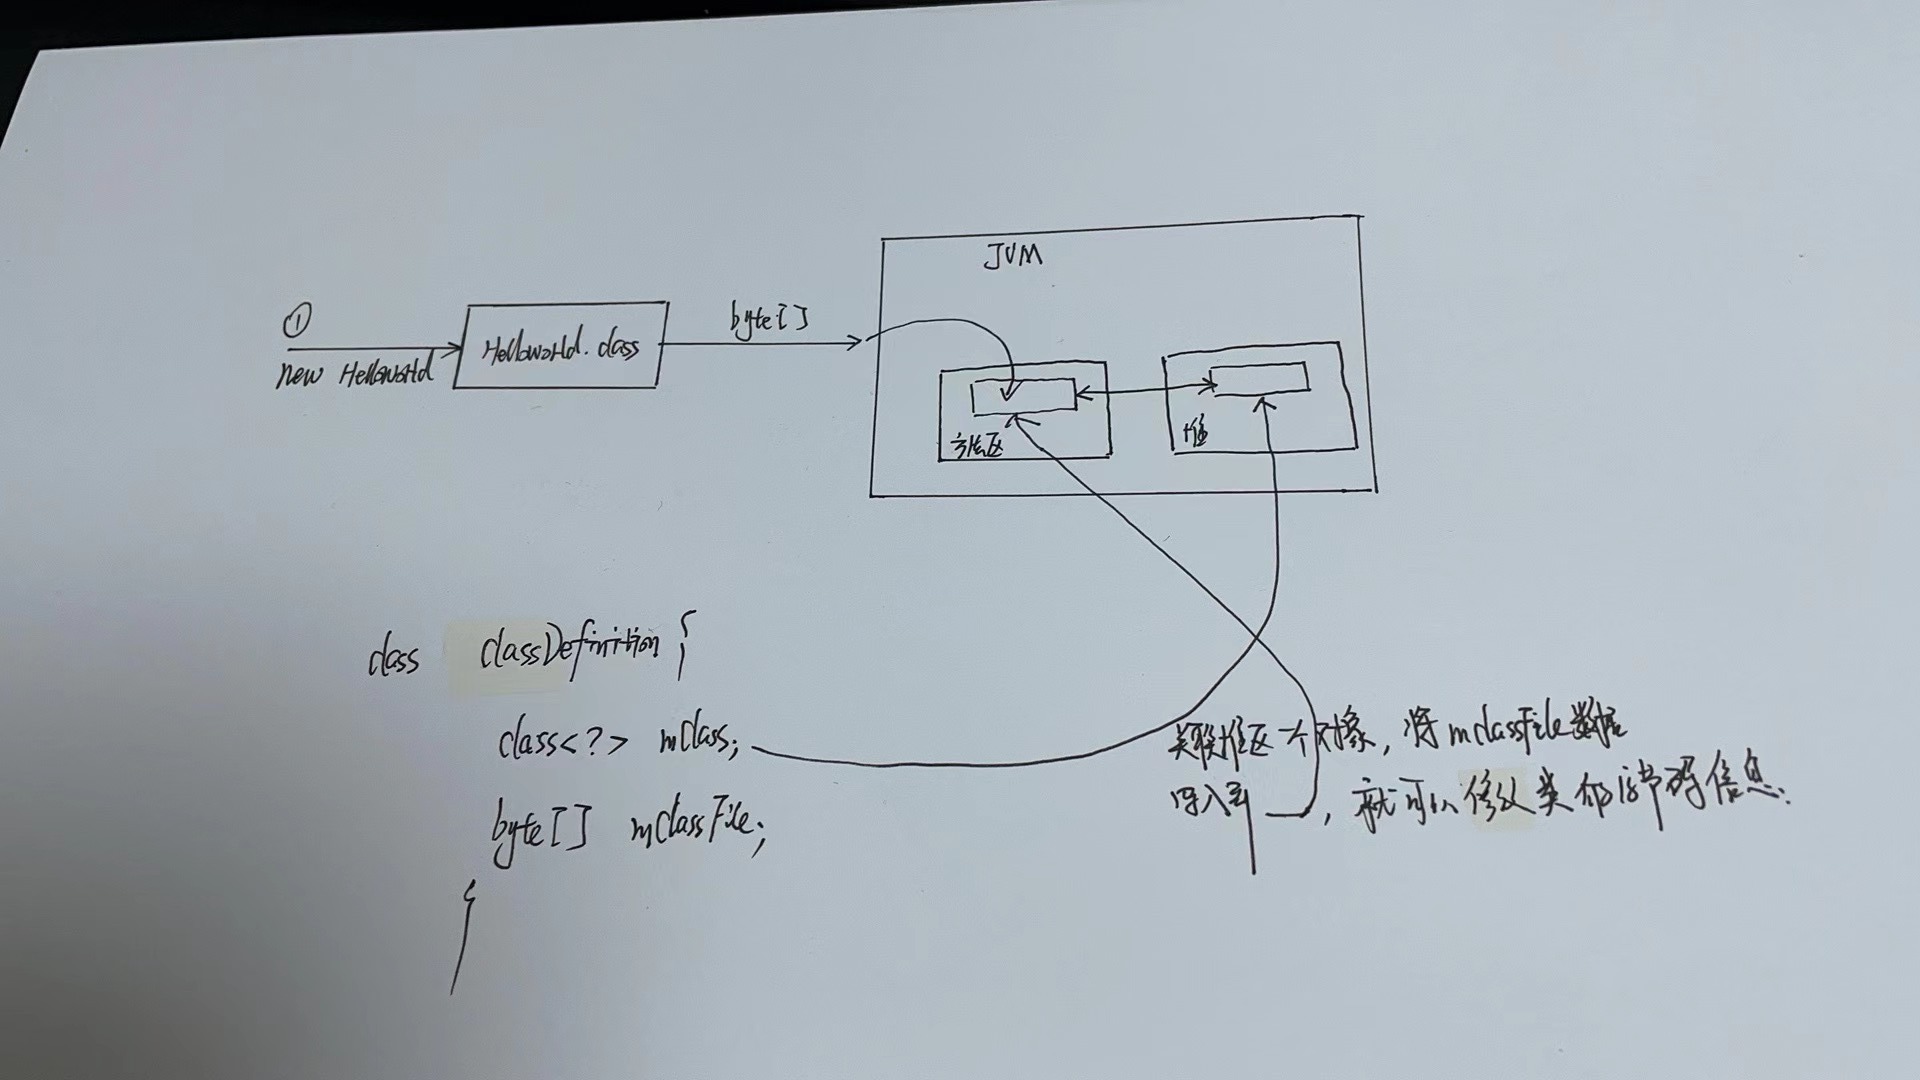 JVM
①
new HelloworHd
HelloworHd.class
byte[]
方法区
堆
class classDefinition {
class<?> mClass;
byte[] mClassFile;
}
关联堆区一个对象，将mclassFile数据
写入到 ，就可以修改类的字节码信息.